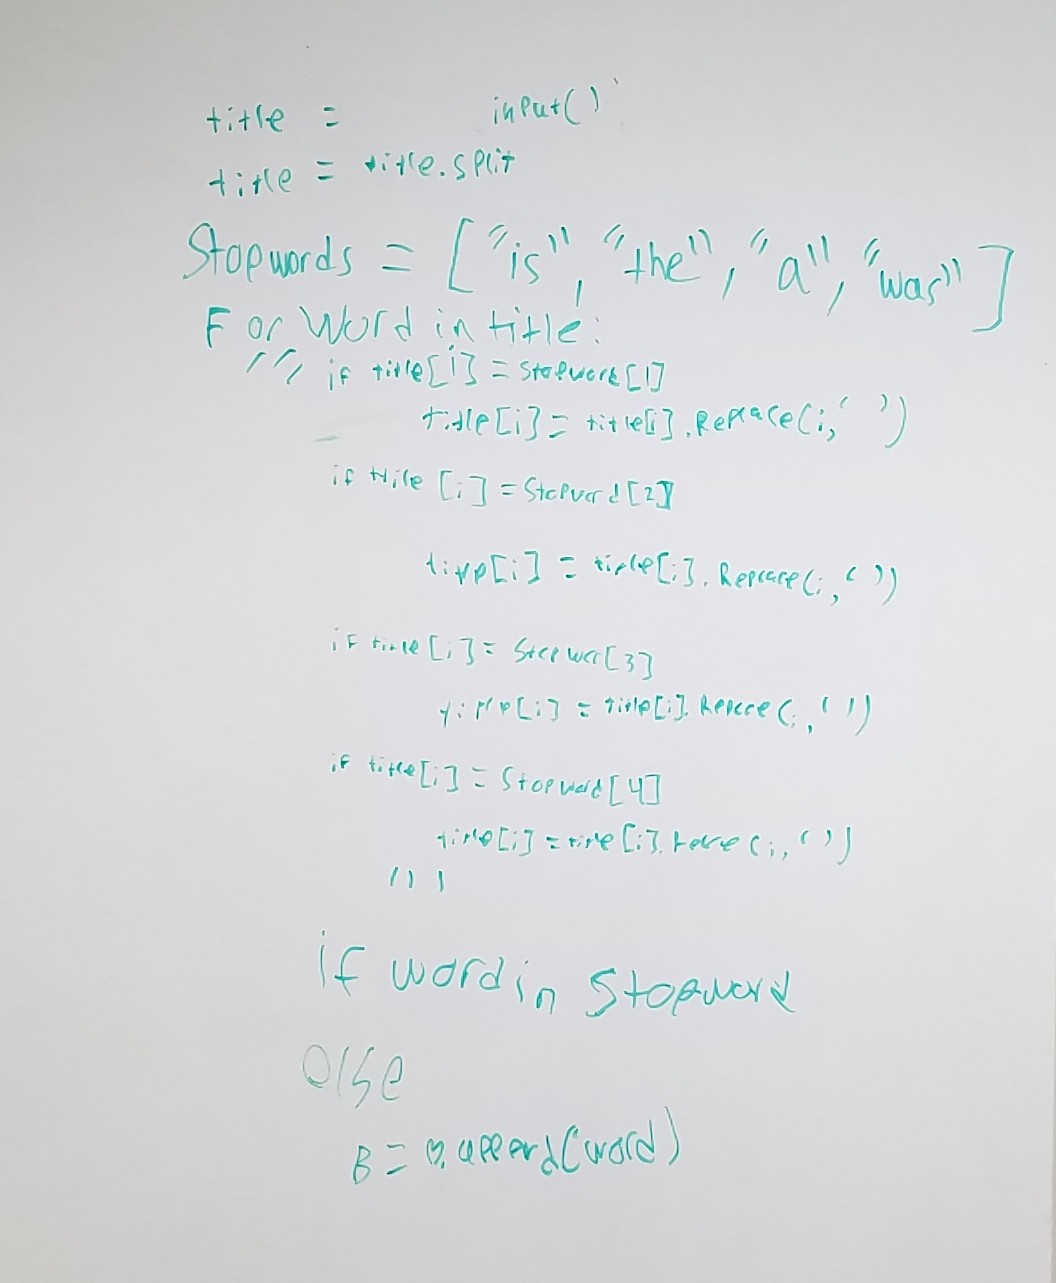 title = input()
title = title.split
Stopwords = ["is", "the", "a", "was"]
For Word in title:
''' if title[i] = Stopword[1]
title[i] = title[i].Replace(i, ' ')
if title [i] = Stopword[2]
title[i] = title[i].Replace(i, ' ')
if title [i] = [3]
title[i] = title[i].Replace(i, ' ')
if title[i] = Stopword[4]
title[i] = title[i].(i, ' ')
'''
if word in Stopword
else
B = B.append(word)